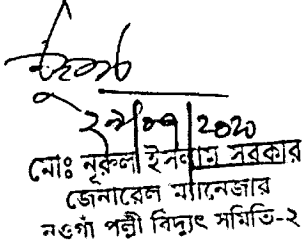 ২৯/০৭/2020
মোঃ নূরুল ইসলাম সরকার
জেনারেল ম্যানেজার
নওগাঁ পল্লী বিদ্যুৎ সমিতি-২